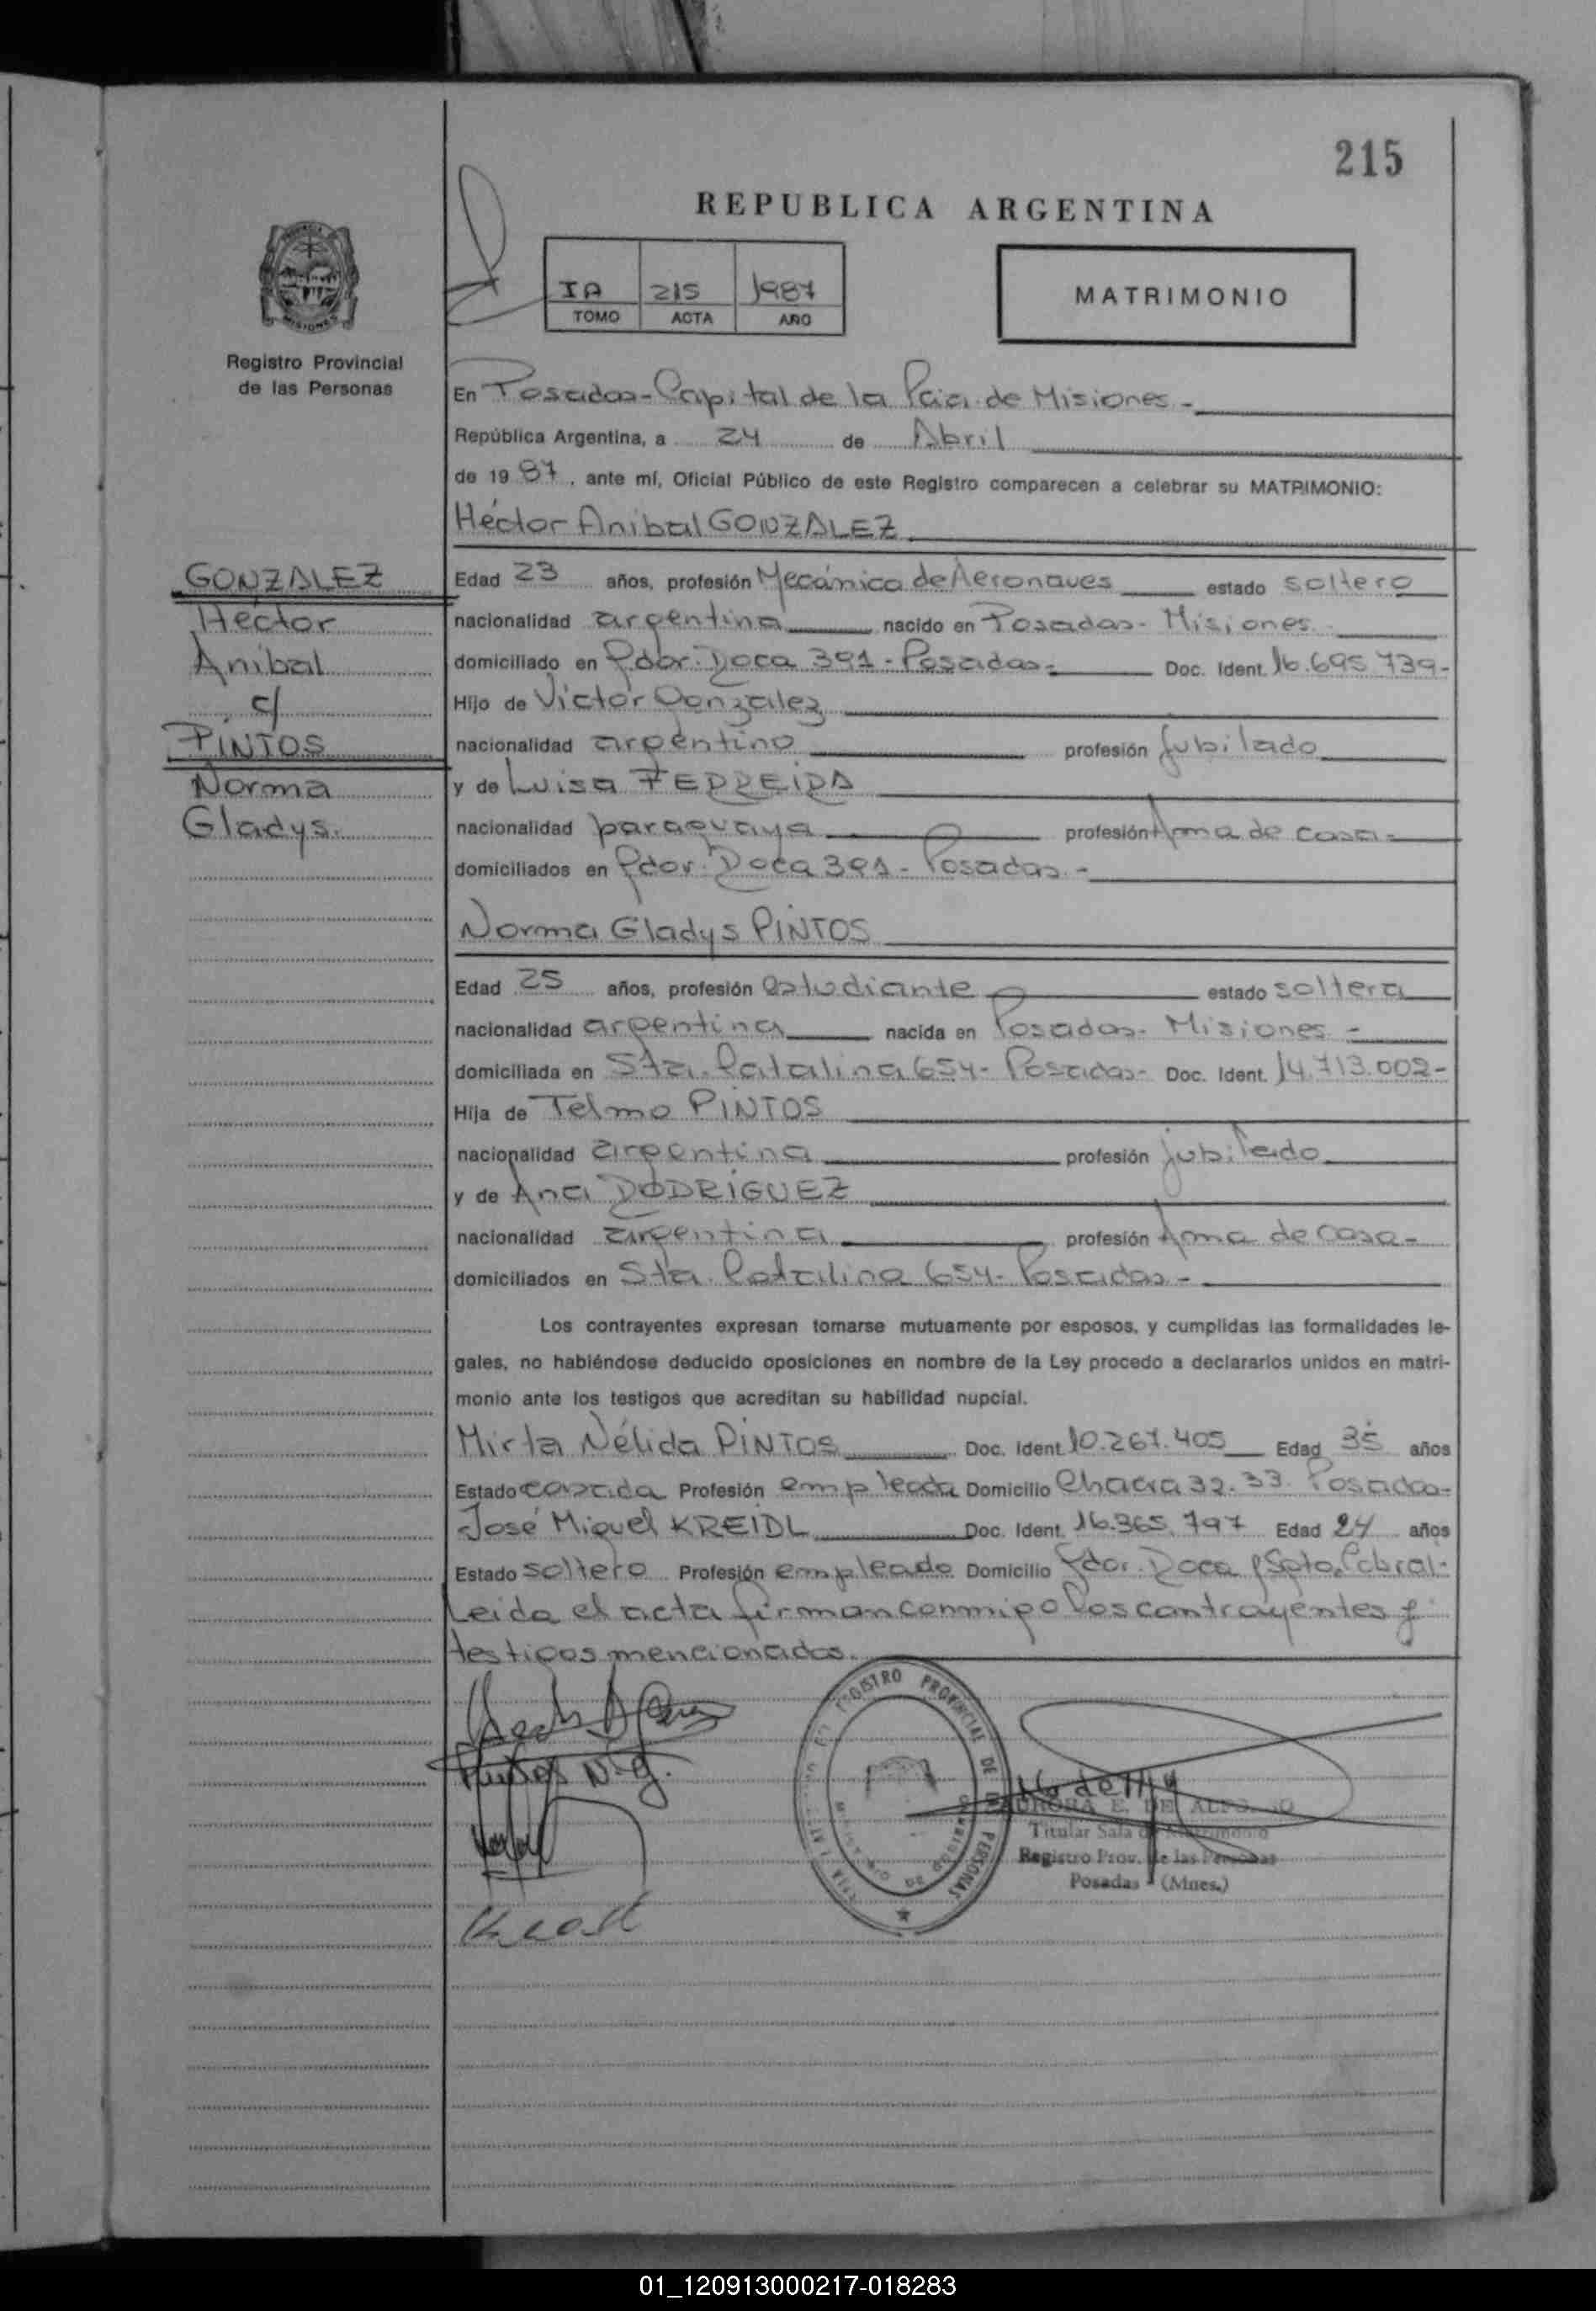 215
REPUBLICA ARGENTINA
IA 215 1987
TOMO ACTA AÑO
MATRIMONIO
MISIONES
Registro Provincial
de las Personas
En Posadas-Capital de la Pcia. de Misiones.-
República Argentina, a 24 de Abril
de 1987, ante mí, Oficial Público de este Registro comparecen a celebrar su MATRIMONIO:
Héctor Anibal GONZALEZ
GONZALEZ
Héctor
Anibal
c/
PINTOS
Norma
Gladys.
Edad 23 años, profesión Mecánico de Aeronaves estado soltero
nacionalidad argentina nacido en Posadas- Misiones.
domiciliado en Gdor. Roca 391-Posadas- Doc. Ident. 16.695.739-
Hijo de Víctor Gonzalez
nacionalidad argentino profesión jubilado
y de Luisa FERREIRA
nacionalidad paraguaya profesión Ama de casa-
domiciliados en Gdor. Roca 391- Posadas.-
Norma Gladys PINTOS
Edad 25 años, profesión estudiante estado soltera
nacionalidad argentina nacida en Posadas- Misiones.-
domiciliada en Sta. Catalina 654- Posadas- Doc. Ident. 14.713.002-
Hija de Telmo PINTOS
nacionalidad argentina profesión jubilado
y de Ana RODRIGUEZ
nacionalidad argentina profesión Ama de casa-
domiciliados en Sta. Catalina 654- Posadas-
Los contrayentes expresan tomarse mutuamente por esposos, y cumplidas las formalidades le-
gales, no habiéndose deducido oposiciones en nombre de la Ley procedo a declararlos unidos en matri-
monio ante los testigos que acreditan su habilidad nupcial.
Mirta Nélida PINTOS Doc. Ident. 10.267.405 Edad 35 años
Estado casada Profesión empleada Domicilio Chacra 32.33. Posadas-
José Miguel KREIDL Doc. Ident. 16.365.797 Edad 24 años
Estado soltero Profesión empleado Domicilio Gdor. Roca y Sgto. Cabral-
Leida el acta firman conmigo los contrayentes y
testigos mencionados.
Pintos N. G.
REGISTRO PROVINCIAL DE LAS PERSONAS
AURORA E. DE
Titular Sala de Matrimonio
Registro Prov. de las Personas
Posadas (Mnes.)
01_120913000217-018283